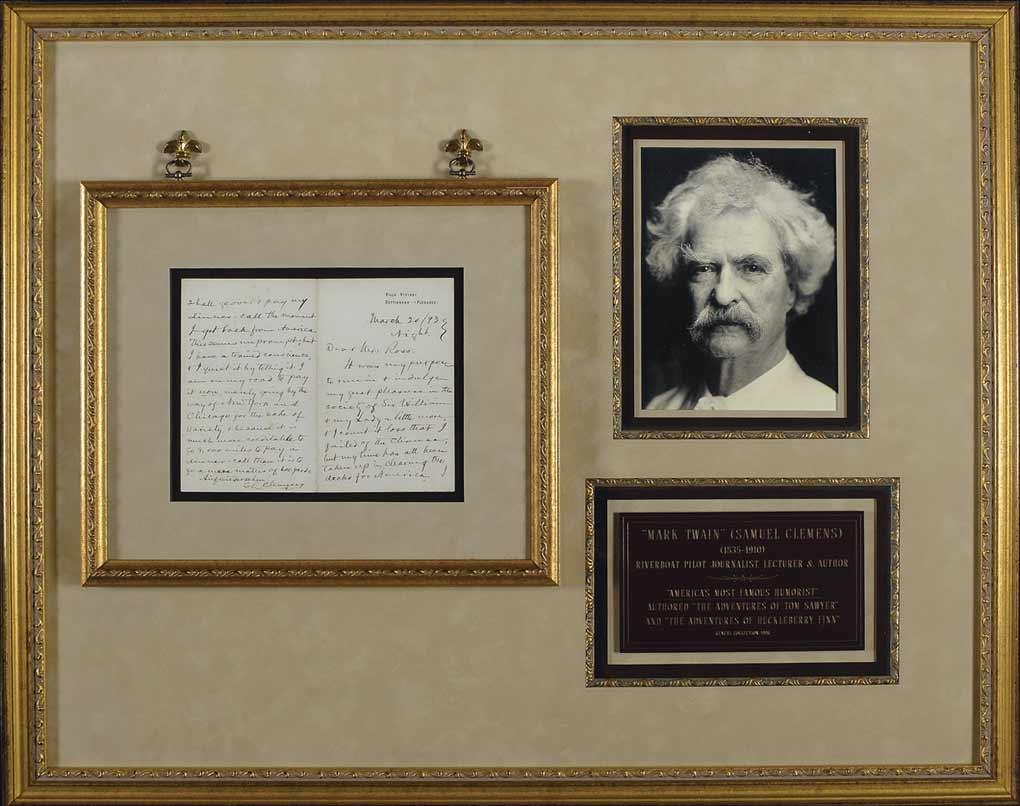 VILLA VIVIANI
SETTIGNANO (FLORENCE)
March 20/93
Night.
Dear Mrs. Ross:
It was my purpose
to resume & indulge
my great pleasure in the
society of Sir William
& my Lady a little more,
& I count it loss that I
failed of the chance;
but my time has all been
taken up in clearing the
decks for America. I
shall go over & pay my
dinner-call the moment
I get back from America.
This seems unprompt, but
I have a trained conscience,
& I quiet it by telling it I
am on my road to pay
it now, merely going by the
way of New York and
Chicago for the sake of
variety & because it is
much more creditable to
go 3,000 miles to pay a
dinner-call than it is to
go a mere matter of 600 yards.
SL Clemens
"MARK TWAIN" (SAMUEL CLEMENS)
(1835-1910)
RIVERBOAT PILOT JOURNALIST, LECTURER & AUTHOR
"AMERICA'S MOST FAMOUS HUMORIST"
AUTHORED "THE ADVENTURES OF TOM SAWYER"
AND "THE ADVENTURES OF HUCKLEBERRY FINN"